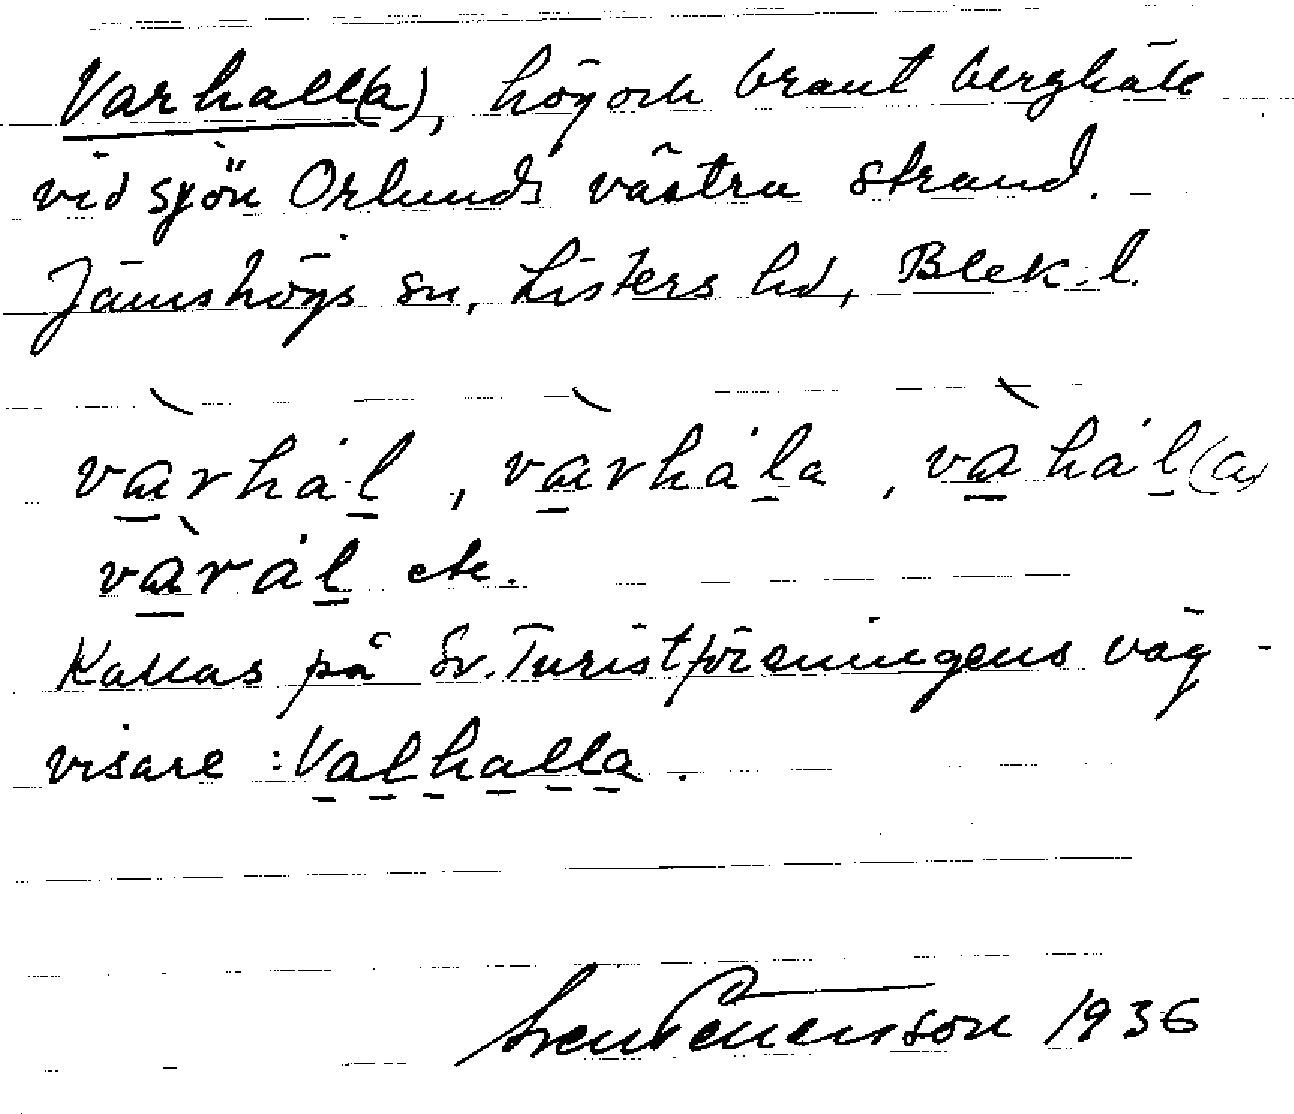 Varhall(a), hög och brant berghäll
vid sjön Orlunds västra strand.
Jämshögs sn, Listers hd, Blek. l.
vàrhál, vàrhála, vàhál(a)
vàrál etc.
Kallas på Sv. Turistföreningens väg-
visare : Valhalla.
Sven Benson 1936